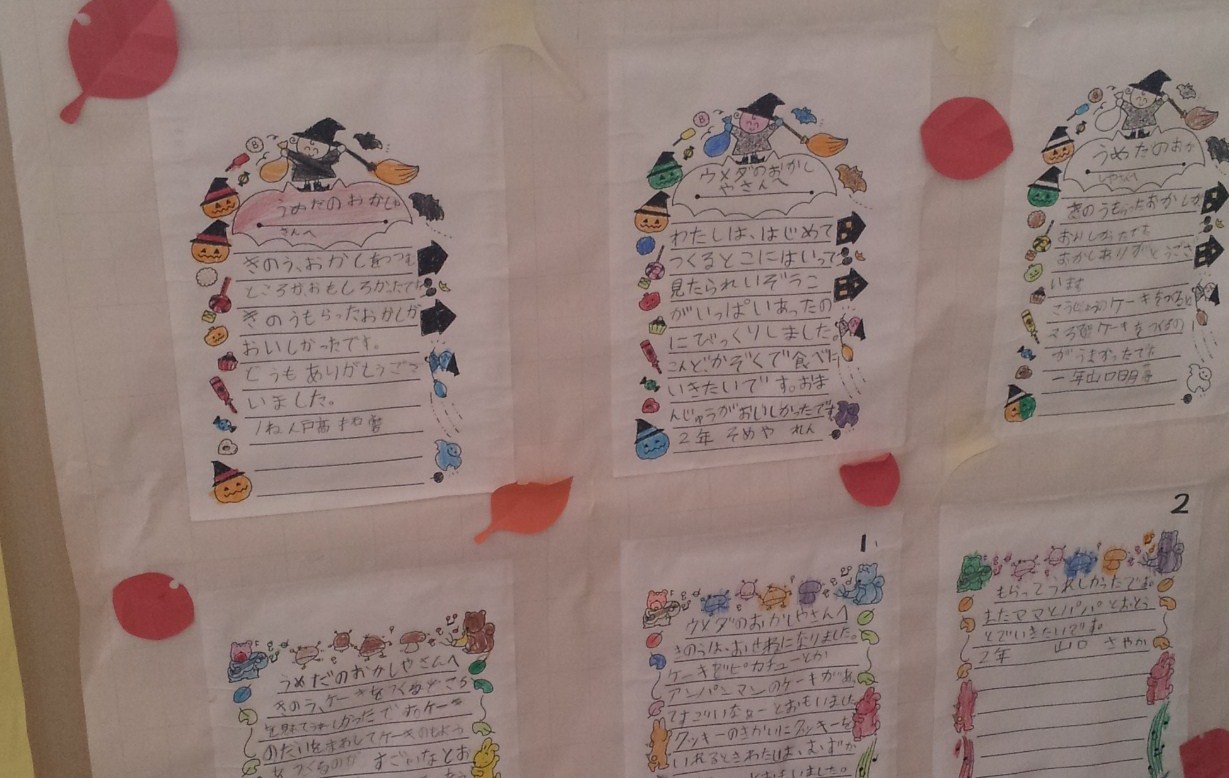 うめだのおかしや
さんへ
きのう、おかしをつつむ
ところが、おもしろかったです。
きのうもらったおかしが
おいしかったです。
どうもありがとうござ
いました。
ウメダのおかし
やさんへ
わたしは、はじめて
つくるとこにはいって
見たられいぞうこ
がいっぱいあったの
にびっくりしました。
こんどかぞくで食べに
いきたいです。おま
んじゅうがおいしかったです。
2年 そめや れん
うめだのおか
しやさんへ
きのうもらったおかしが
おいしかったです
おかしありがとうござ
います
ケーキをつくると
ころ
がうまかったです
一年山口
うめだのおかしやさんへ
きのう、ケーキをつくるところ
を見れてうれしかったです。ケーキ
ケーキのもよう
をつくるのが すごいなとお
1
ウメダのおかしやさんへ
きのうは、おせわになりました。
ケーキでピカチューとか
アンパンマンのケーキがあ
すごいなぁーとおもいました
クッキーのきかいにクッキーを
いれるときわたしは、むずか
とおもいました。
2
もらってうれしかったです。
またママとパパとおとう
とでいきたいです。
2年 山口 さやか